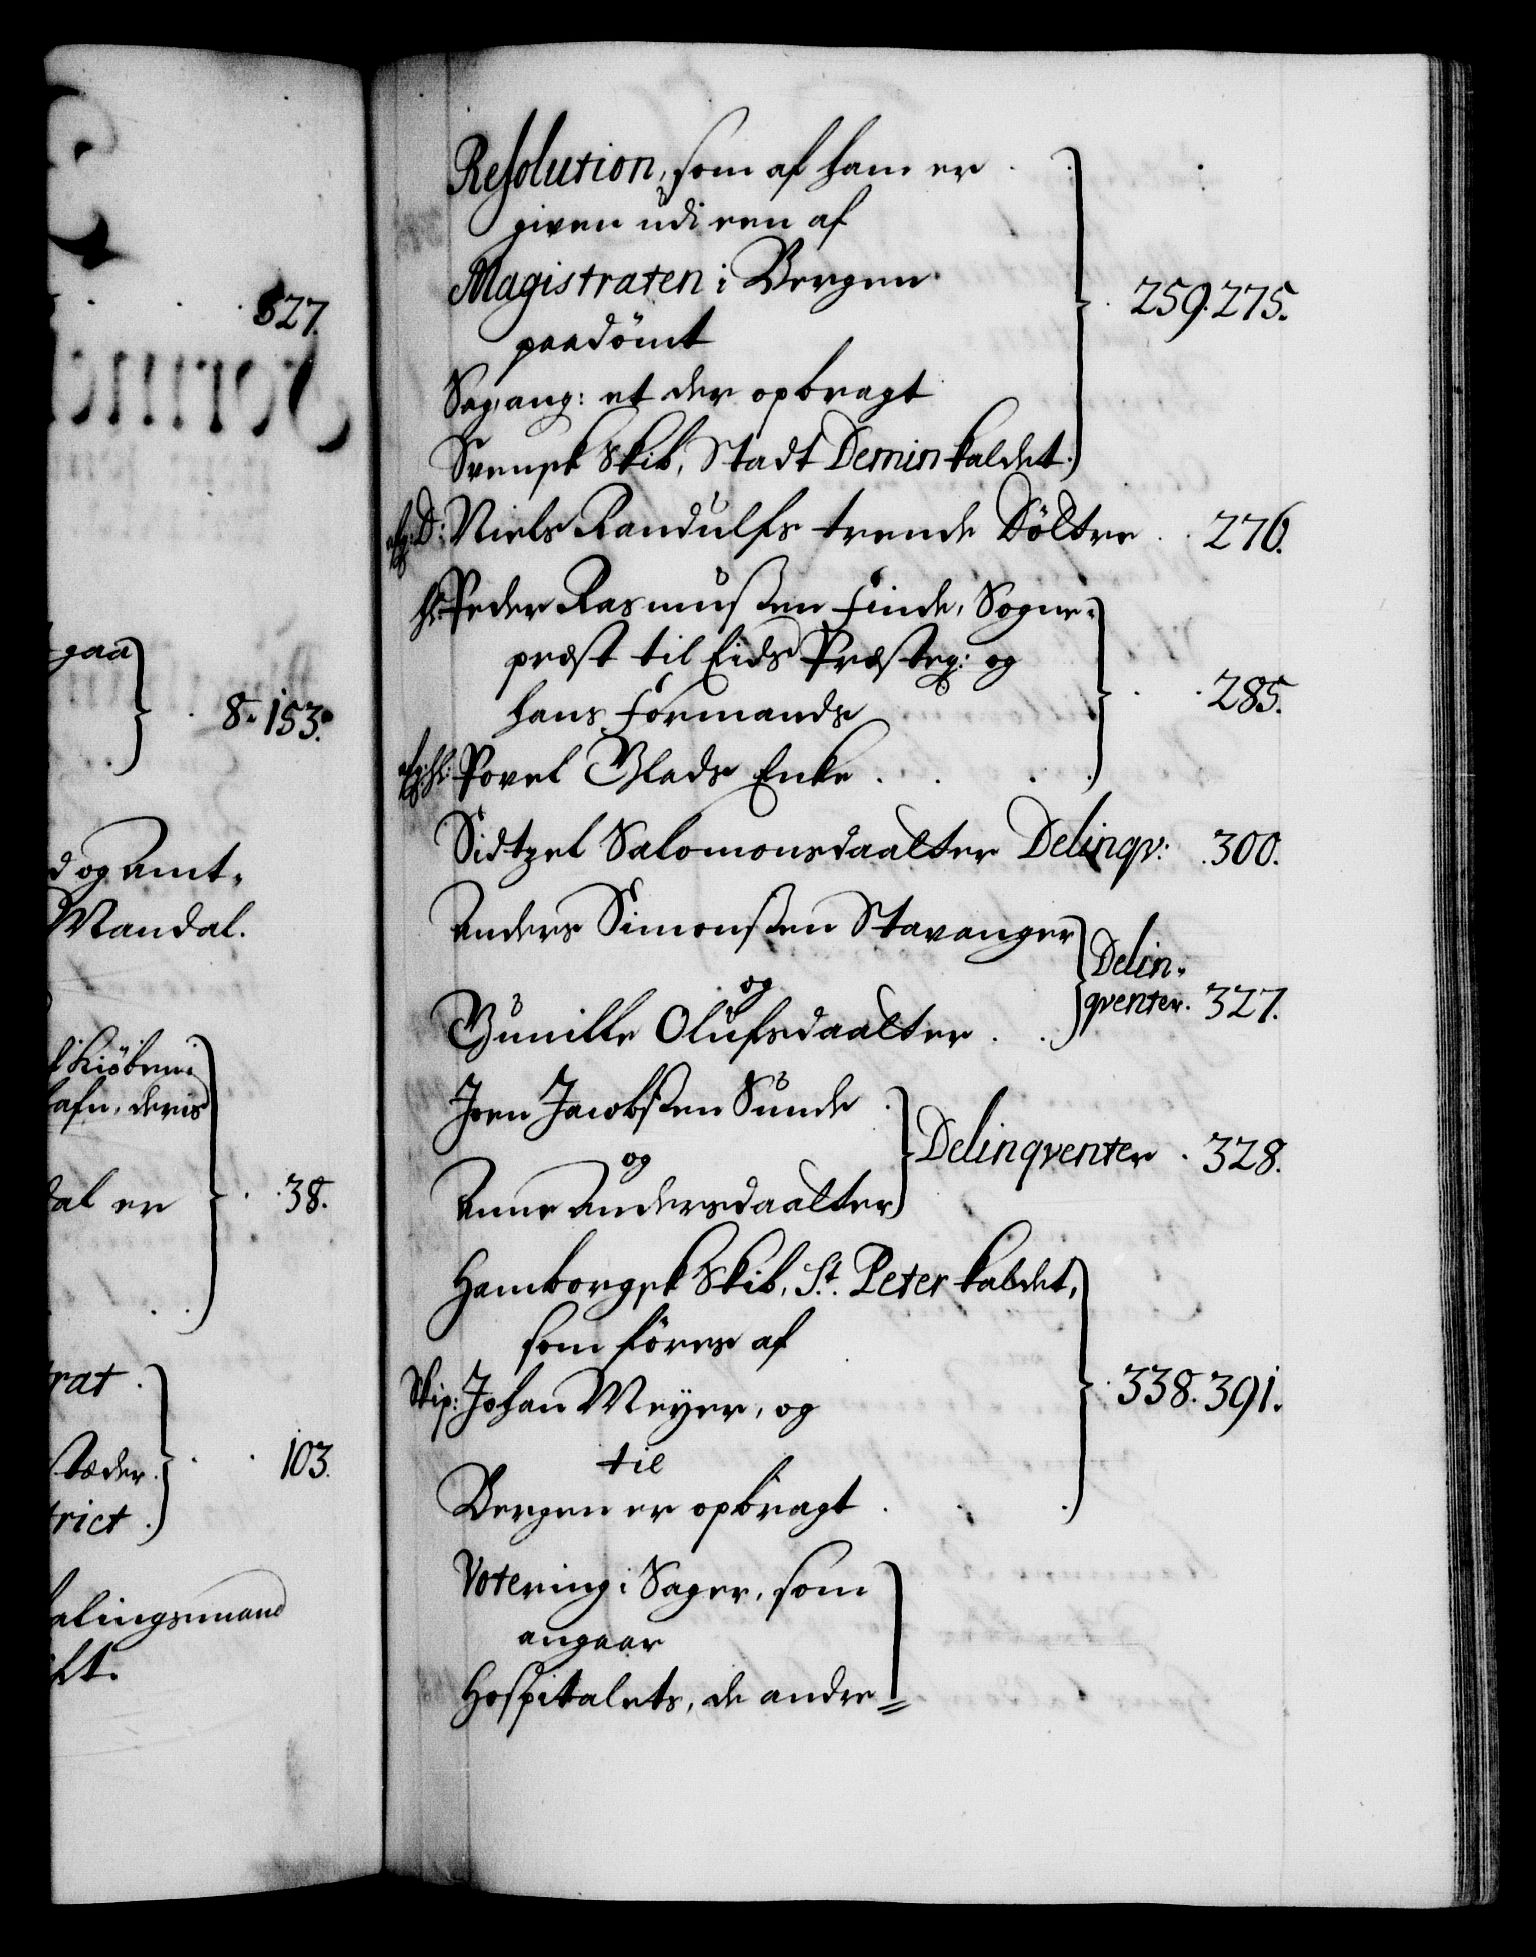 527.
gaa
8. 153.
d og Amt-
Mandal.
Kiöben-
hafn, deris
dal er
38.
trat.
Stæder.
103.
trict.
alingsmand
Resolution, som af ham er
given udi een af
Magistraten i Bergen
paadömt
Sag, ang: et der opbragt
Svensk Skib, Stadt Demin kaldet.
259. 275.
afg: D: Niels Randulfs trende Döttre . . 276.
Hr: Peder Rasmussen Finde, Sogne-
præst til Eids Præsteg: og
hans Formands
285.
afg: Hr: Povel Glads Enke . . . .
Sidtzel Salomonsdaatter Delinqv: . 300.
Anders Simonssen Stavanger
og
Gunille Olufsdaatter . .
Delin-
qventer. 327.
Joen Jacobssen Sunde .
og
Anne Andersdaatter
Delinqventer . 328.
Hamborgsk Skib, St. Peter kaldet,
som föres af
Skip: Johan Meyer, og
338. 391.
til
Bergen er opbragt . . .
Votering i Sager, som
angaar
Hospitalets, de andre=